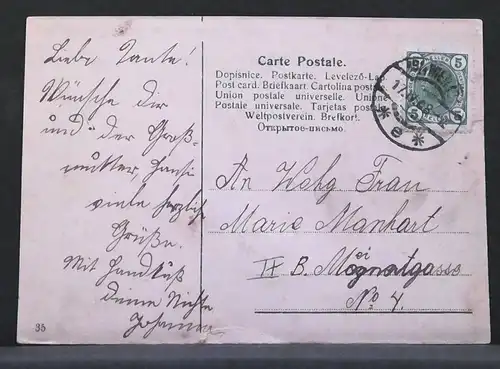 Liebe Tante!
Wünsche dir
und der Groß-
mutter, Hansi
viele herzliche
Grüße.
Mit Handkuß
deine Nichte
Johanna
35
Carte Postale.
Dopisnice. Postkarte. Levelező-La
Post card. Briefkaart. Cartolina posta
Union postale universelle. Unione
Postale universale. Tarjetas posta
Weltpostverein. Brefkort.
Открытое письмо.
5 5
5 5
* e *
An Wohg Frau
Marie Manhart
B.
No 4.